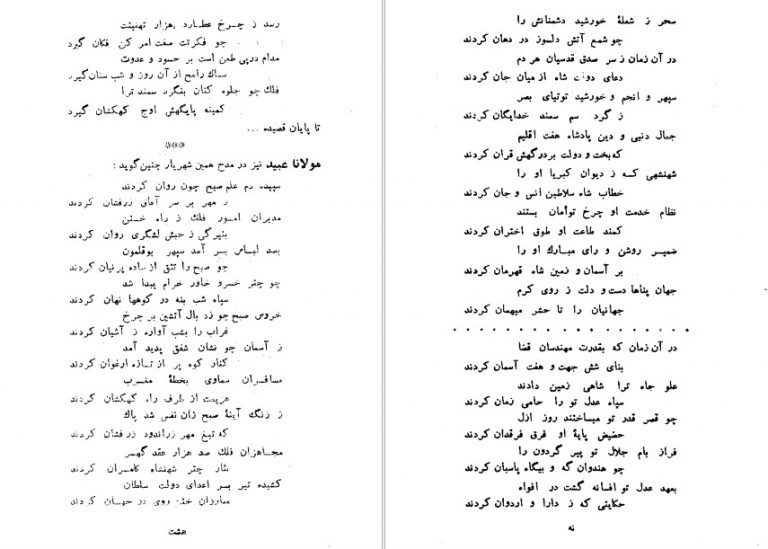 رسد ز چرخ عطارد هزار تهنیتت
چو فکرتت صفت امر کن فکان گیرد
مدام درپی طعن است بر حسود و عدوت
سماك رامح از آن روز و شب سنان گیرد
فلك چو جلوه کنان بنگرد سمند ترا
کمینه پایگهش اوج کهکشان گیرد
تا پایان قصیده ...
***
مولانا عبید نیز در مدح همین شهریار چنین گوید :
سپیده دم علم صبح چون روان کردند
ز مهر بر سر آفاق زرفشان کردند
مدبران امور فلك ز راه ختن
بتیرگی ز حبش لشگری روان کردند
بصد لباس بر آمد سپهر بوقلمون
چو صبح را تتق از ساده پرنیان کردند
چو چتر خسرو خاور خرام پیدا شد
سپاه شب بنه در کوهها نهان کردند
خروس صبح چو زد بال آتشین بر چرخ
غراب را بشب آواره ز آشیان کردند
ز آسمان چو نشان شفق پدید آمد
کنار کوه پر از تازه ارغوان کردند
مسافران سماوی بخطهٔ مغرب
هزیمت از طرف راه کهکشان کردند
ز زنگ آینهٔ صبح زان نفس شد پاك
که تیغ مهر زراندود زرفشان کردند
مجاهزان فلك صد هزار عقد گهر
نثار چتر شهنشاه کامران کردند
کشیده تیر بسر اعدای دولت سلطان
مبارزان ختن روی در جهان کردند
هشت
سحر ز شعلهٔ خورشید دشمنانش را
چو شمع آتش دلسوز در دهان کردند
در آن زمان ز سر صدق قدسیان هر دم
دعای دولت شاه از میان جان کردند
سپهر و انجم و خورشید توتیای بصر
ز گرد سم سمند خدایگان کردند
جمال دنیی و دین پادشاه هفت اقلیم
که بخت و دولت بر درگهش قران کردند
شهنشهی که ز دیوان کبریا او را
خطاب شاه سلاطین انس و جان کردند
نظام خدمت او چرخ توأمان بستند
کمند طاعت او طوق اختران کردند
ضمیر روشن و رای مبارك او را
بر آسمان و زمین شاه قهرمان کردند
جهان پناها دست و دلت ز روی کرم
جهانیان را تا حشر میهمان کردند
. . . . . . . . . . . . . . . . . .
در آن زمان که بقدرت مهندسان قضا
بنای شش جهت و هفت آسمان کردند
علو جاه ترا شاهی زمین دادند
سپاه عدل تو را حامی زمان کردند
چو قصر قدر تو میساختند روز ازل
حضیض پایهٔ او فرق فرقدان کردند
فراز بام جلال تو پیر گردون را
چو هندوان گه و بیگاه پاسبان کردند
بعهد عدل تو افسانه گشت در افواه
حکایتی که ز دارا و اردوان کردند
نه